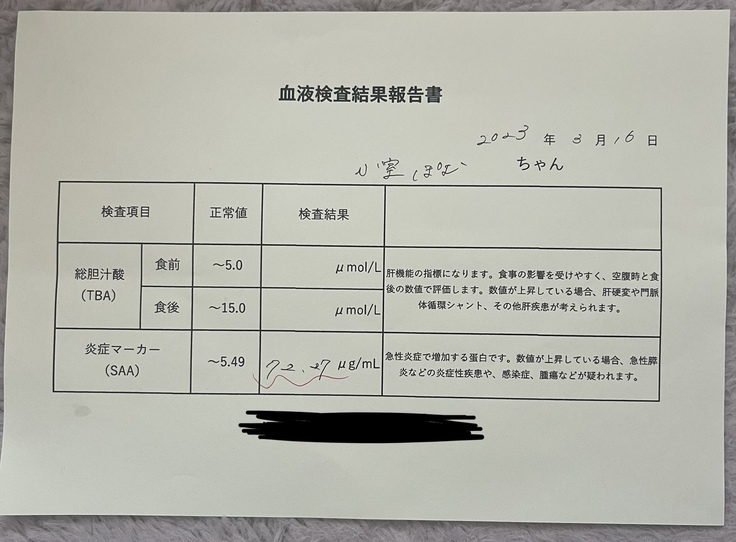 血液検査結果報告書
2023 年 3 月 16 日
小室 ちゃん
検査項目 正常値 検査結果
総胆汁酸
(TBA)
食前 ～5.0 μmol/L
食後 ～15.0 μmol/L
肝機能の指標になります。食事の影響を受けやすく、空腹時と食
後の数値で評価します。数値が上昇している場合、肝硬変や門脈
体循環シャント、その他肝疾患が考えられます。
炎症マーカー
(SAA)
～5.49 72.27 μg/mL
急性炎症で増加する蛋白です。数値が上昇している場合、急性膵
炎などの炎症性疾患や、感染症、腫瘍などが疑われます。